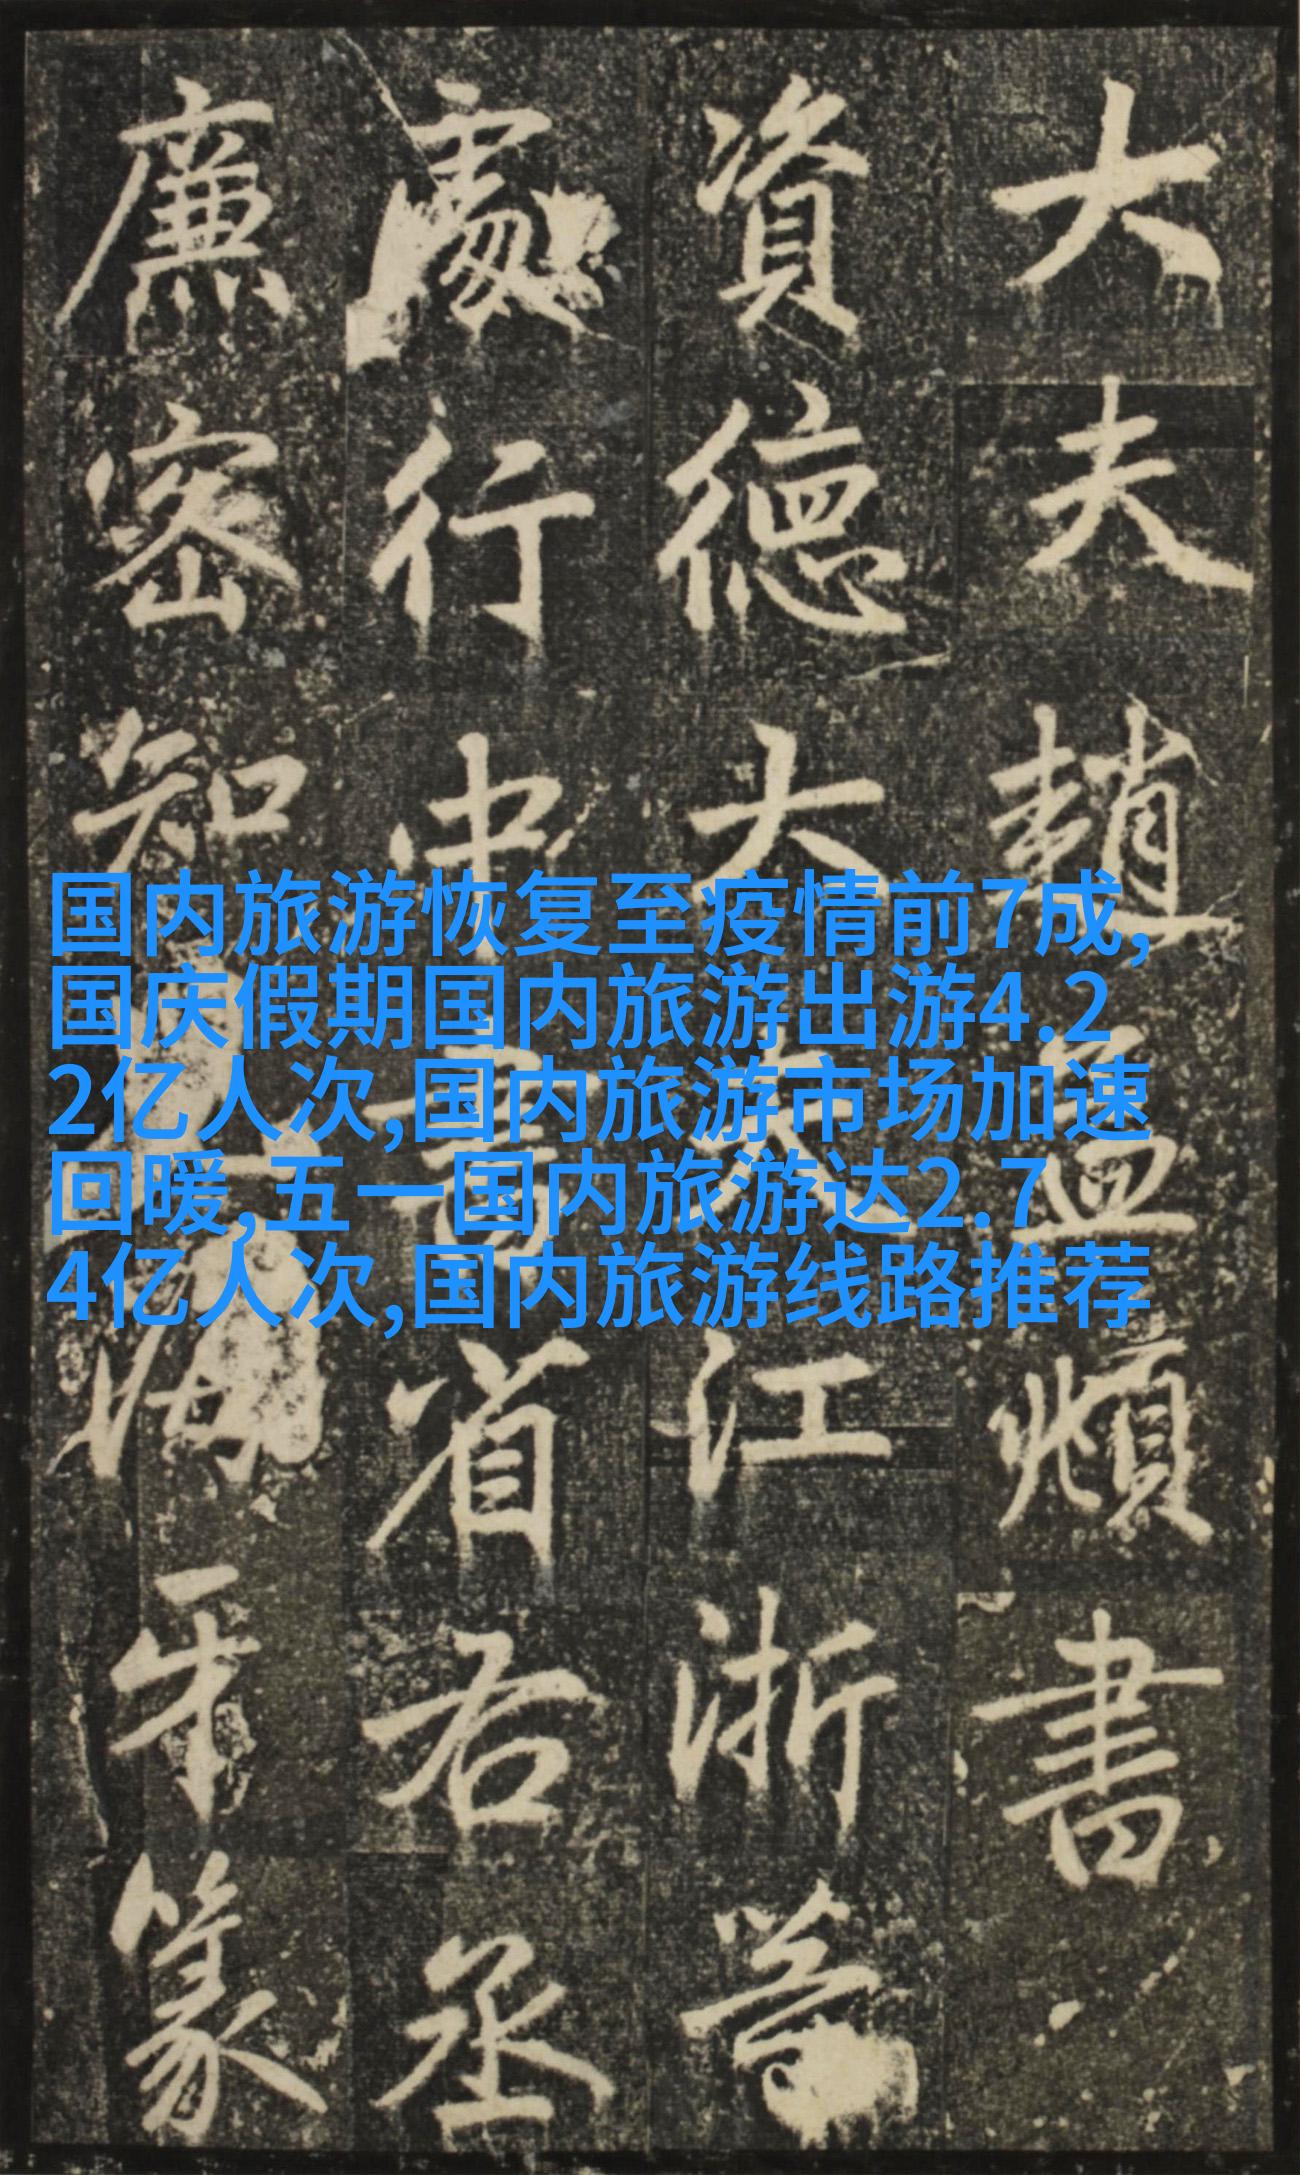 国内旅游恢复至疫情前7成,
国庆假期国内旅游出游4.2
2亿人次,国内旅游市场加速
回暖,五一国内旅游达2.7
4亿人次,国内旅游线路推荐
大夫趙孟頫書
資德大夫江浙等
處行中書省右丞
廉密知海牙篆